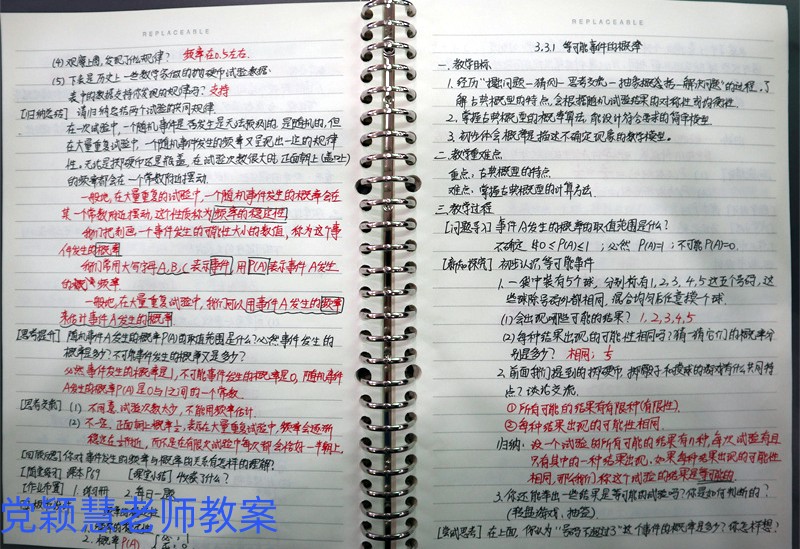 REPLACEABLE
(4) 观察上图,发现了什么规律? 频率在0.5左右.
(5) 下表是历史上一些数学家做的抛硬币试验数据.
表中的数据支持你发现的规律吗? 支持
[归纳总结] 请归纳总结两个试验的共同规律
在一次试验中,一个随机事件是否发生是无法预测的 是随机的,但
在大量重复试验中,一个随机事件发生的频率又呈现出一定的规律
性,无论是抛硬币还是瓶盖,在试验次数很大时,正面朝上(盖口上)
的频率都会在一个常数附近摆动.
一般地,在大量重复的试验中,一个随机事件发生的频率会在
某一个常数附近摆动,这个性质称为频率的稳定性
我们把刻画一个事件发生的可能性大小的数值,称为这个事
件发生的概率
我们常用大写字母A,B,C表示事件,用P(A)表示事件A发生
的概率
一般地,在大量重复试验中,我们可以用事件A发生的频率
来估计事件A发生的概率.
[思考提升] 随机事件A发生的概率P(A)的取值范围是什么?必然事件发生的
概率是多少?不可能事件的概率又是多少?
必然事件发生的概率是1,不可能事件发生的概率是0,随机事件
A发生的概率P(A)是0与1之间的一个常数.
[思考交流] (1) 不同意.试验次数太少,不能用频率估计.
(2) 不一定,正面朝上概率½,表示在大量重复试验中,频率会逐渐
稳定在½附近,而不是在有限次试验中每次都会恰好一半朝上.
[回顾反思] 你对事件发生的频率与概率的关系有怎样的理解?
[随堂练习] 课本P69 [课堂小结] 今收获了什么?
[作业布置] 1. 练习册 2. 每日一题
2. 概率 P(A)
REPLACEABLE
3.3.1 等可能事件的概率
一.教学目标
1. 经历“提出问题—猜测—思考交流—抽象概括—解决问题”的过程,了
解古典概型的特点,会根据随机试验结果的对称性或均衡性
2. 掌握古典概型的概率算法,能设计符合要求的简单模型
3. 初步体会概率是描述不确定现象的数学模型.
二.教学重难点
重点:古典概型的特点
难点:掌握古典概型的计算方法.
三.教学过程
[问题导入] 事件A发生的概率的取值范围是什么?
不确定 0≤P(A)≤1 ;必然 P(A)=1 ;不可能 P(A)=0.
[新知探究] 初步认识等可能事件
1. 一袋中装有5个球,分别标有1,2,3,4,5这五个号码,这
些球除号码外都相同,混合均匀后任意摸一个球.
(1) 会出现哪些可能的结果? 1,2,3,4,5
(2) 每种结果出现的可能性相同吗?猜一猜它们的概率分
别是多少? 相同,
2. 前面我们提到的抛硬币,掷骰子和摸球的游戏有什么共同特
点?谈论交流.
①所有可能的结果有有限种(有限性).
②每种结果出现的可能性相同.
归纳:设一个试验的所有可能的结果有n种,每次试验有且
只有其中的一种结果出现.如果每种结果出现的可能性
相同,那么我们称这个试验的结果是等可能的.
3. 你还能举出一些结果是等可能的试验吗?你是如何判断的?
(转盘游戏,抽签)
[尝试思考] 在上面,你认为“号码不超过3”这个事件的概率是多少?你怎样想?
党颖慧老师教案